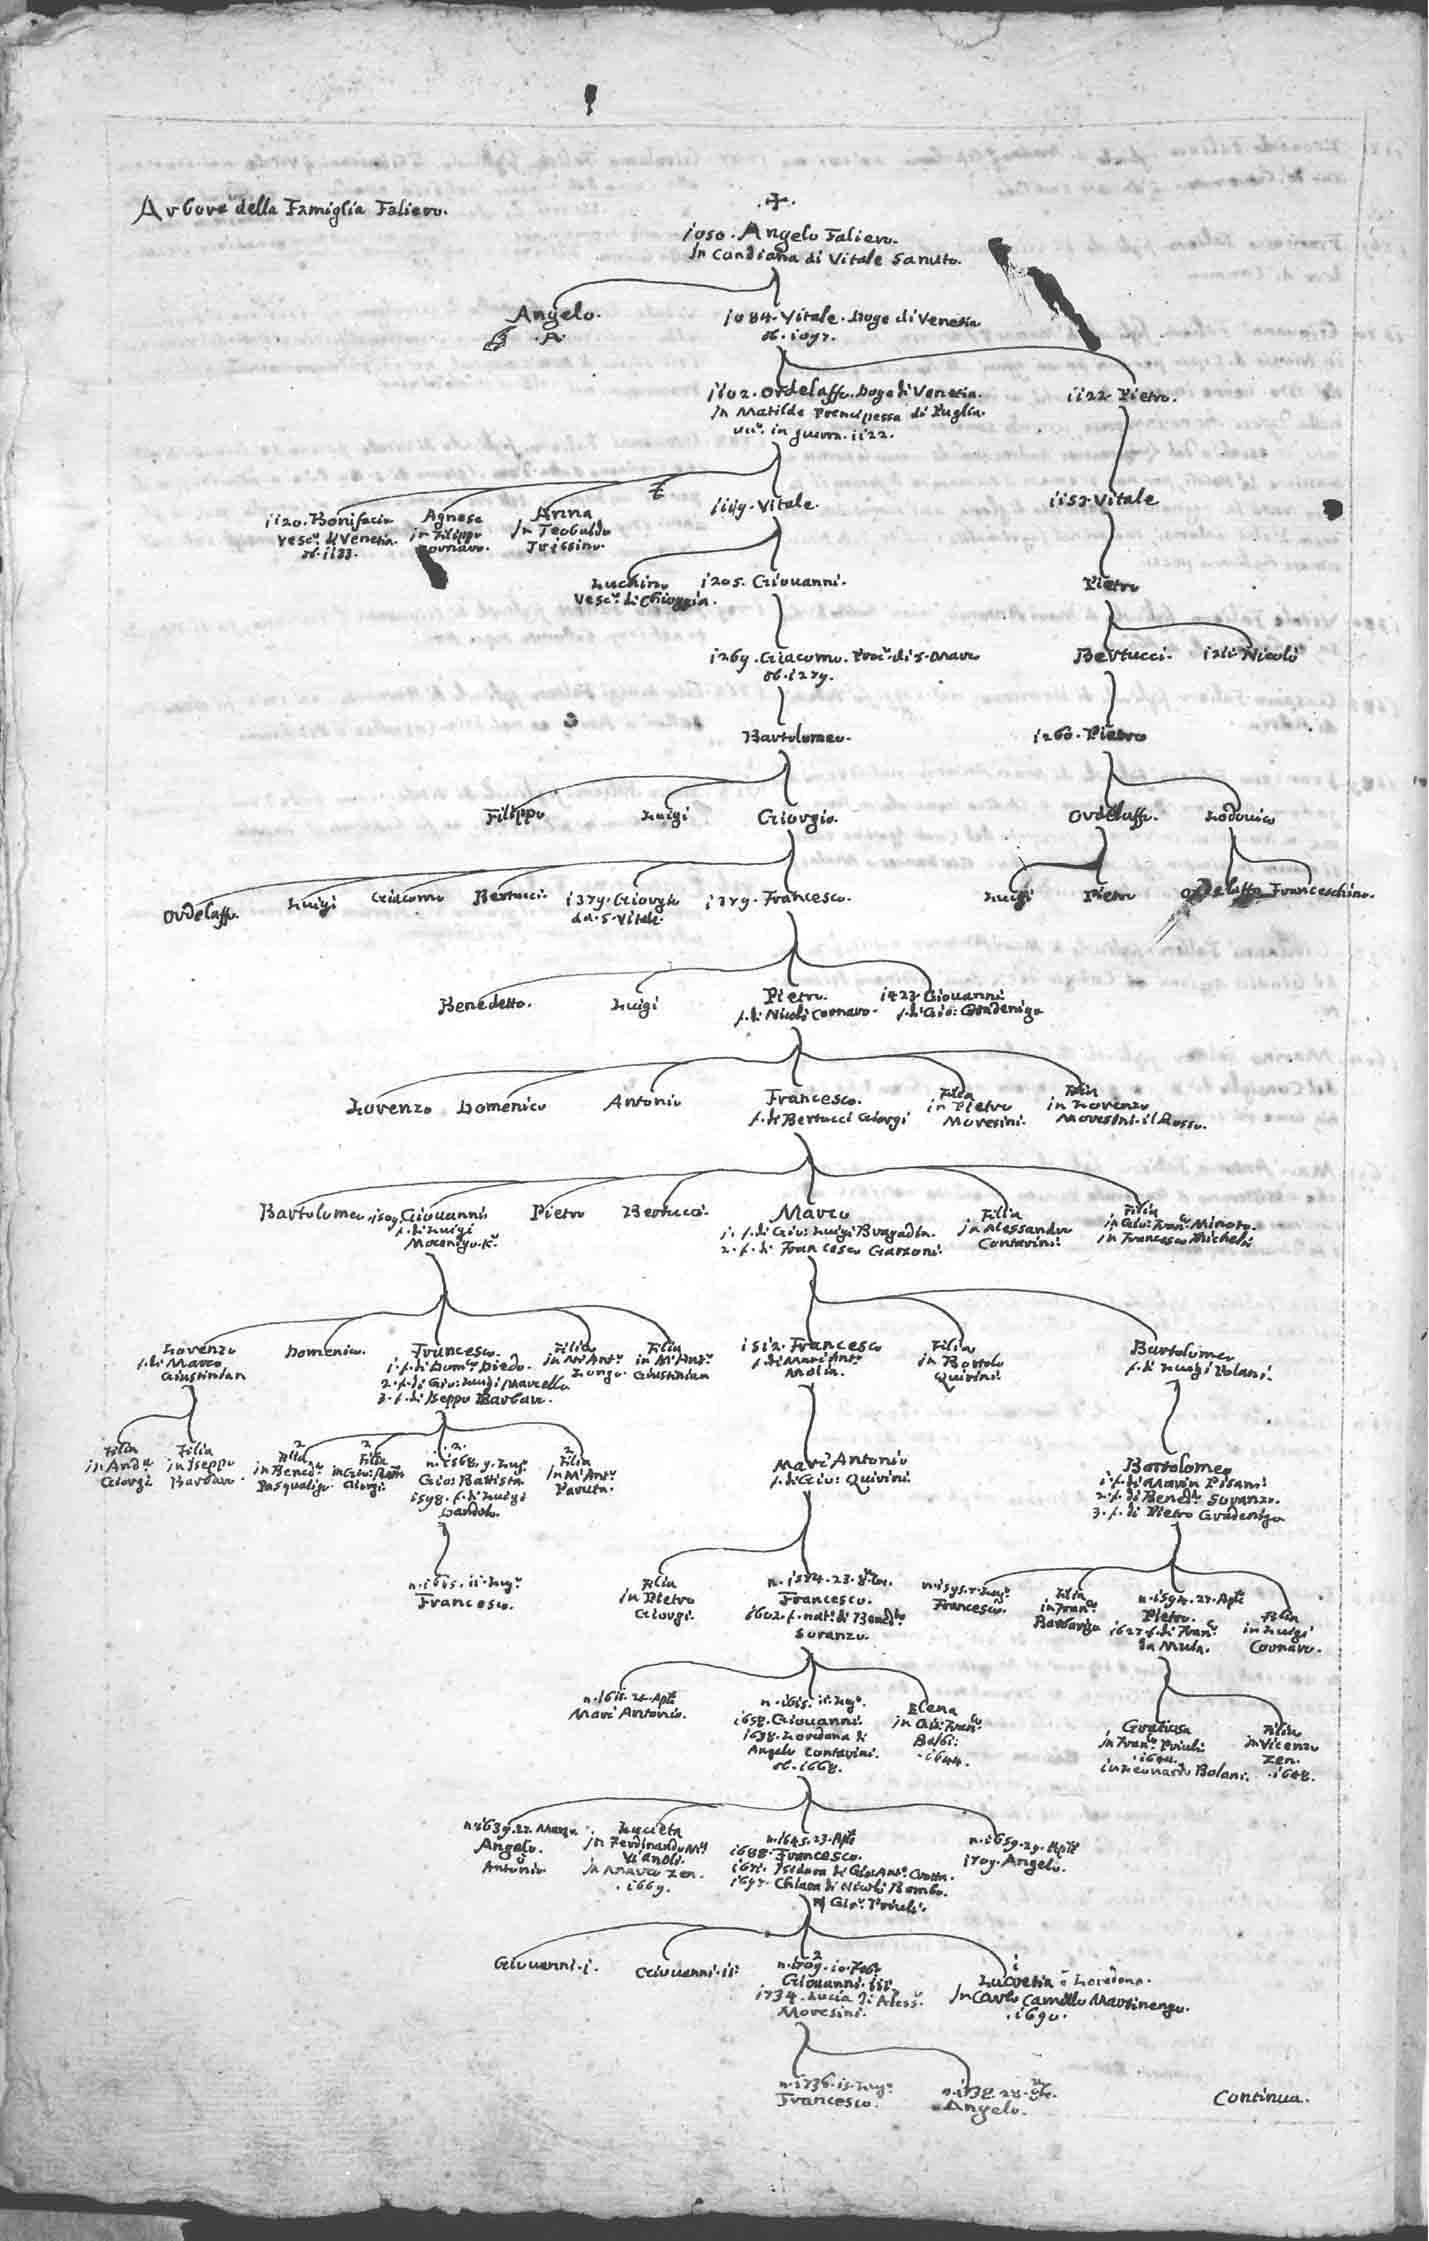 Arbore della Famiglia Faliero.
1050. Angelo Faliero.
in Candiana di Vitale Sanuto.
Angelo.
A
1084. Vitale. Doge di Venetia
ob. 1097.
1102. Ordelaffo. Doge di Venetia.
in Matilde Prencipessa di Puglia
in guerra. 1122.
1122. Pietro.
1120. Bonifacio
Vesc.º di Venetia.
ob. 1133.
Agnese
in Filippo
Cornaro.
Anna
in Teobaldo
Trissino.
1169. Vitale.
1153. Vitale
Luchino
Vesc.º di Chioggia.
1205. Giovanni.
Pietro
1269. Giacomo. Proc.r di S. Marco
ob. 1279.
Bertucci.
1211. Nicolò
Bartolomeo.
1260. Pietro
Filippo
Luigi
Giorgio.
Ordelaffo.
Lodovico
Ordelaffo.
Luigi
Giacomo
Bertucci.
1379. Giorgio
da S. Vitale.
1379. Francesco.
Luigi
Pietro
Ordelaffo
Franceschino.
Benedetto.
Luigi
Pietro.
f. di Nicolò Cornaro.
1423. Giovanni
f. di Gio: Gradenigo
Lorenzo
Domenico
Antonio
Francesco.
f. di Bertucci Giorgi
Filia
in Pietro
Moresini.
Filia
in Lorenzo
Moresini. il Rosso.
Bartolomeo.
1509. Giovanni
f. di Luigi
Mocenigo K.r
Pietro
Bertucci.
Marco
1. f. di Gio: Luigi Bragadin.
2. f. di Francesco Garzoni.
Filia
in Alessandro
Contarini.
Filia
in Gio: Fran.co Minoto.
in Francesco Michiel
Lorenzo
f. di Marco
Giustinian
Domenico.
Francesco.
1. f. di Dom.co Diedo.
2. f. di Gio: Luigi Marcello
3. f. di Iseppo Barbaro.
Filia
in M. Ant.º
Longo.
Filia
in M. Ant.º
Giustinian
1512. Francesco
f. di Marc'Ant.º
Molin.
Filia
in Bortolo
Quirini.
Bartolomeo
f. di Luigi Polani.
Filia
in And.a
Giorgi
Filia
in Iseppo
Barbaro.
2
Filia
in Bened.o
Pasqualigo.
2
Filia
Giorgi.
.2.
n. 1568. 9. Lug.º
Gio: Battista
1598. f. di Luigi
Dandolo.
2
Filia
in M. Ant.º
Paruta.
Marc'Antonio
f. di Gio: Quirini.
Bartolomeo
1. f. di Marin Pisani.
2. f. di Bened.o Soranzo.
3. f. di Pietro Gradenigo
n. 1605. 11. Lug.º
Francesco.
Filia
in Pietro
Giorgi.
n. 1574. 23.
Francesco.
1602. f. nat.l di Bened.to
Soranzo.
Francesco.
Filia
in Fran.co
Barbarigo
n. 1594. 27. Ap.le
Pietro.
1627. f. di Fran.co
da Mula.
Filia
in Luigi
Cornaro.
n. 1611. 21. Ap.le
Marc'Antonio.
n. 1615. 11. Lug.º
1658. Giovanni.
1638. Loredana di
Angelo Contarini.
ob. 1668.
Elena
in Gio: Fran.co
Balbi.
1644.
Gratiosa
in Fran.co Priuli
1644.
in Leonardo Bolani.
Filia
in Vicenzo
Zen.
1648.
n. 1639. 22. Marzo.
Angelo
Antonio
Lucieta
in Ferdinando M.ª
Vianoli.
in Marco Zen.
1669.
n. 1645. 23. Ap.le
1688. Francesco.
1671. Isidora di Gio: Ant.º Crotta.
1697. Chiara di Nicolò Bembo.
Gio: Priuli.
n. 1659. 29. Ap.le
1709. Angelo.
Giovanni. i.
Giovanni. ii.
2
n. 1709. 10. Feb.º
Giovanni. iii.
1734. Lucia di Aless.º
Moresini.
i
Lucretia ò Loredana.
in Carlo Camillo Martinengo.
1690.
n. 1736. 15. Lug.º
Francesco.
Angelo.
Continua.